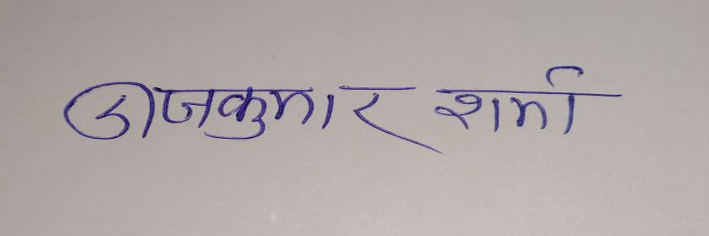 राजकुमार शर्मा